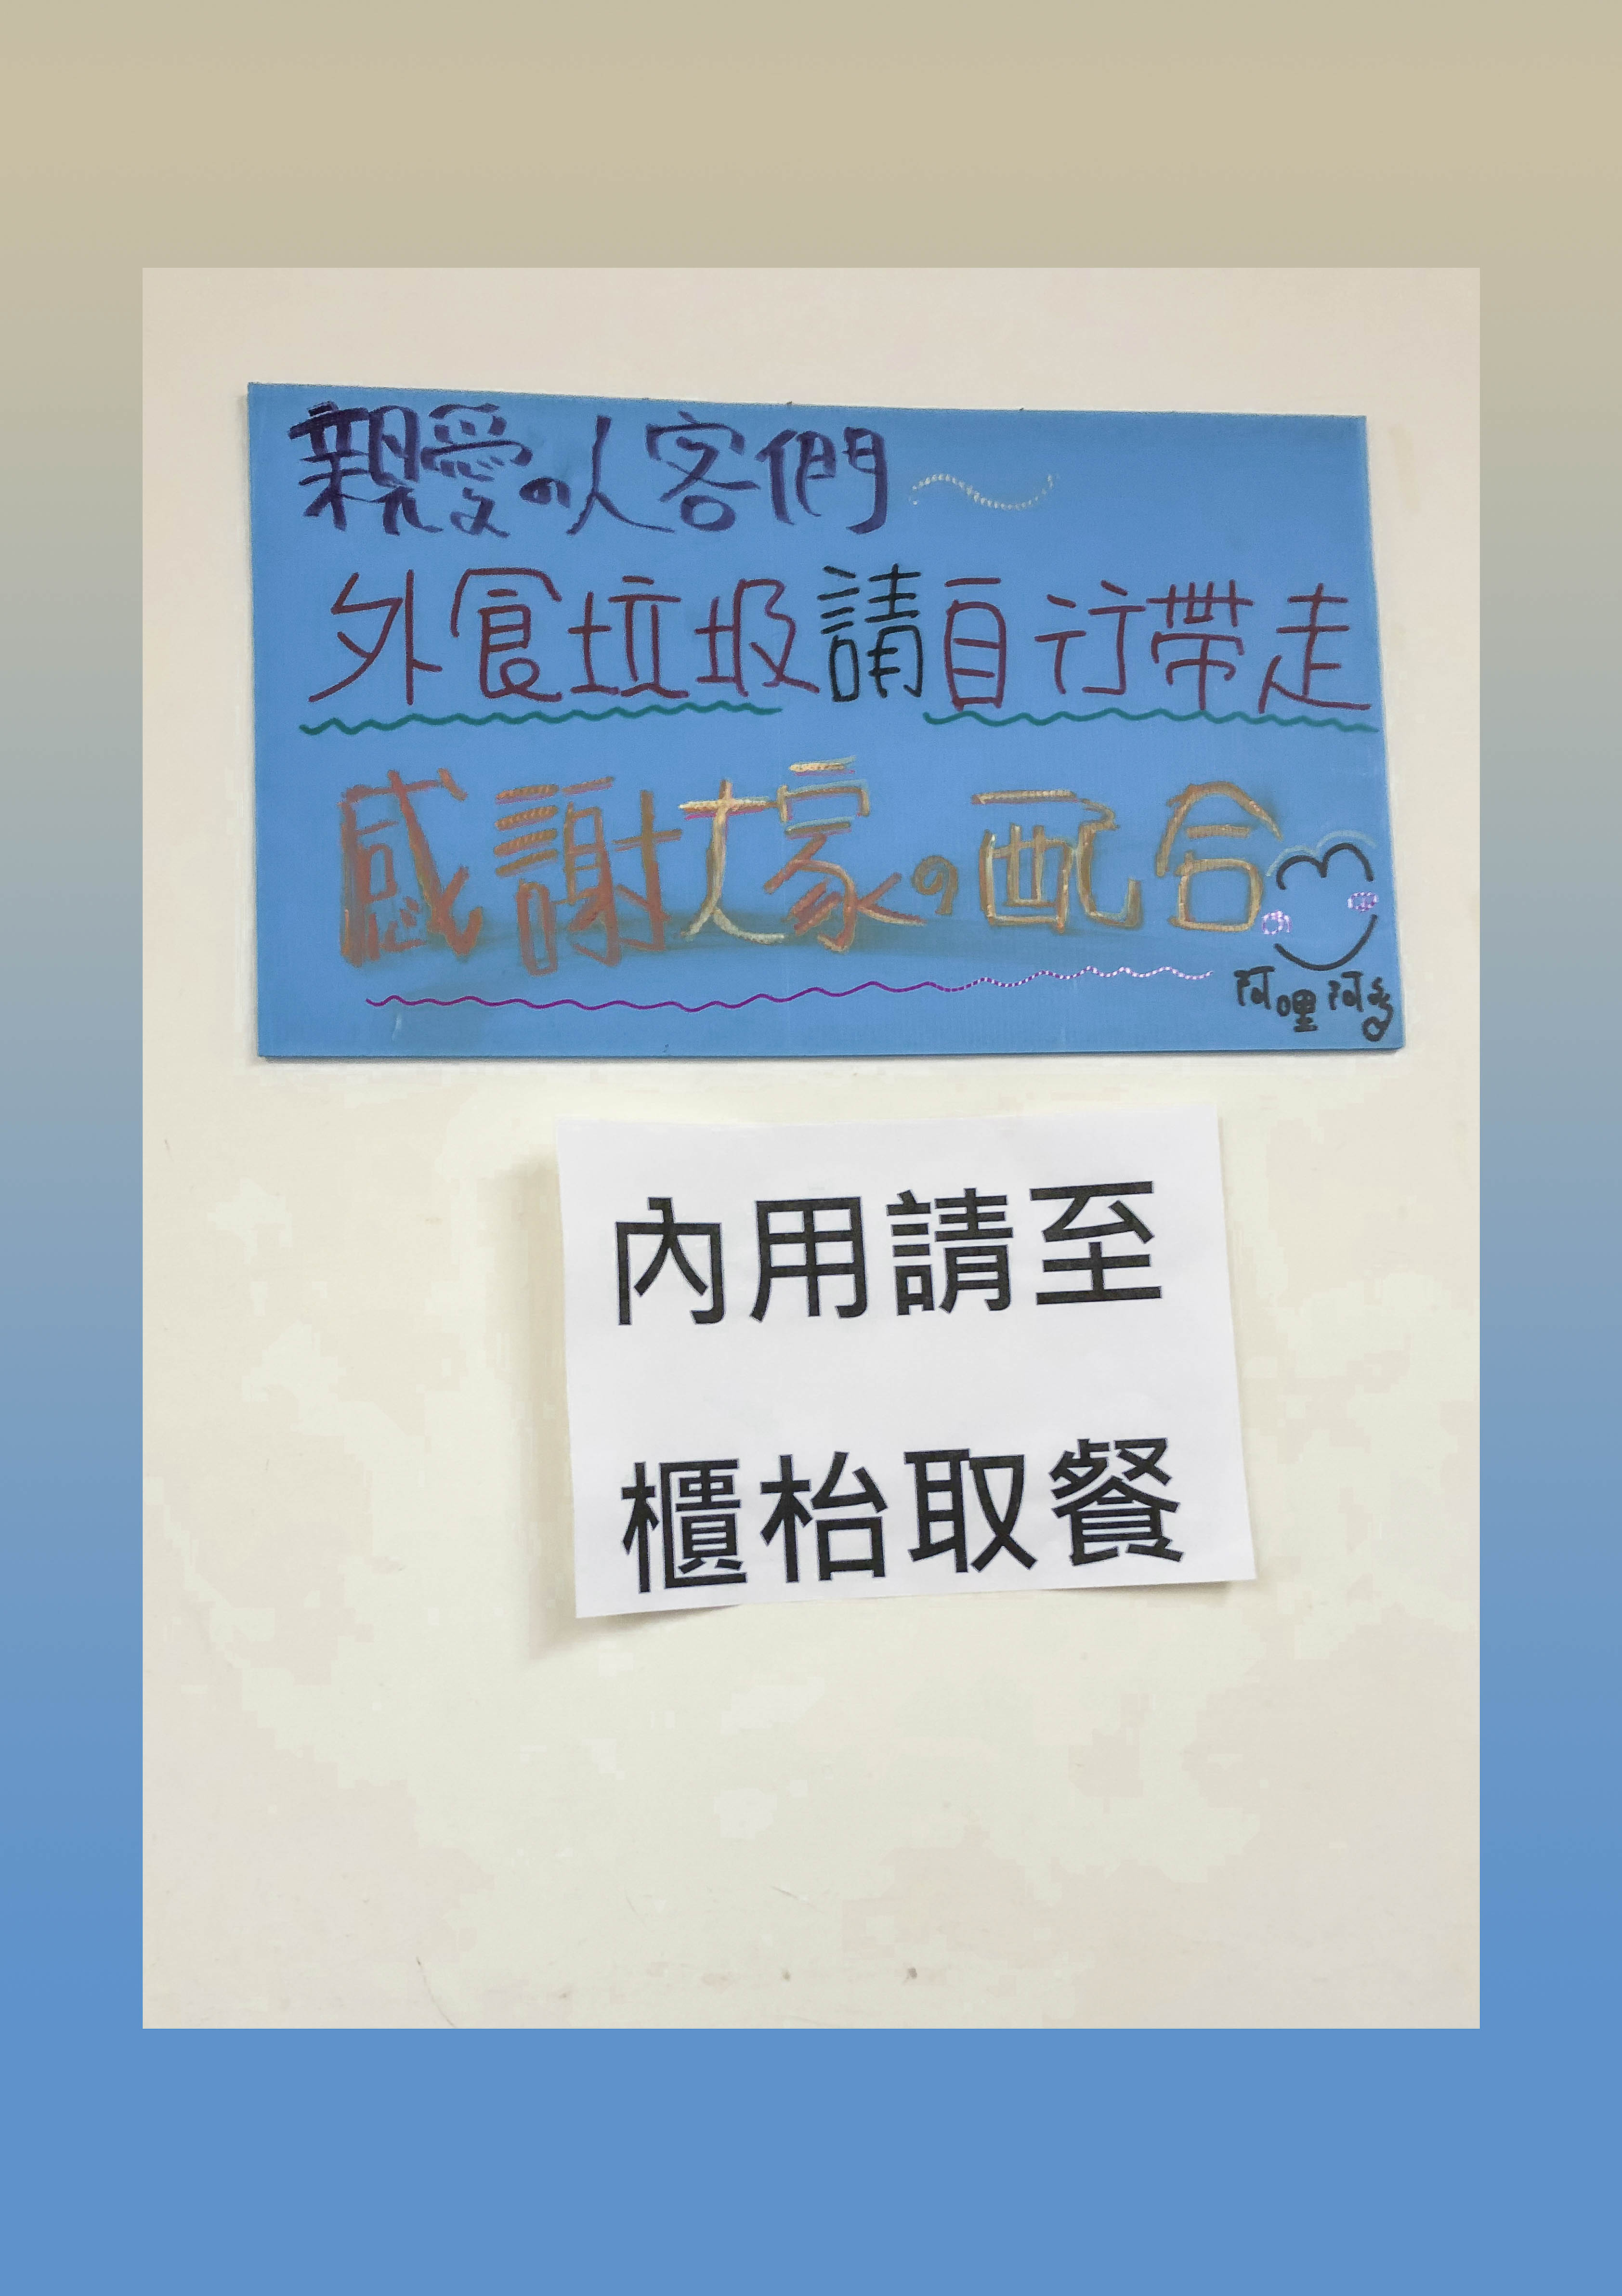 親愛の人客們～
外食垃圾請自行帶走
感謝大家の配合
阿哩阿多
內用請至
櫃枱取餐